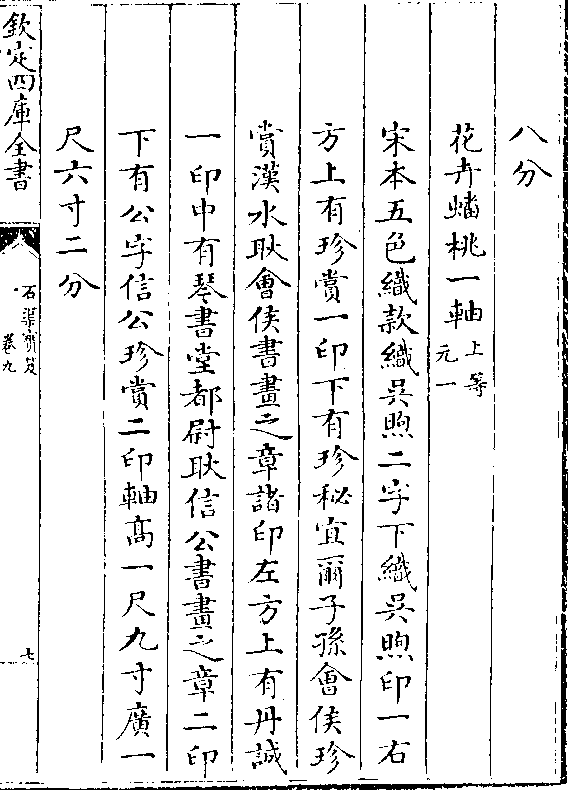 八分
花卉蟠桃一軸上等元一
宋本五色織款織吳煦二字下織吳煦印一右
方上有珍賞一印下有珍秘宜爾子孫會侯珍
賞漢水耿會侯書畫之章諸印左方上有丹誠
一印中有琴書堂都尉耿信公書畫之章二印
下有公字信公珍賞二印軸髙一尺九寸廣一
尺六寸二分
欽定四庫全書
石渠寶笈
卷九
七